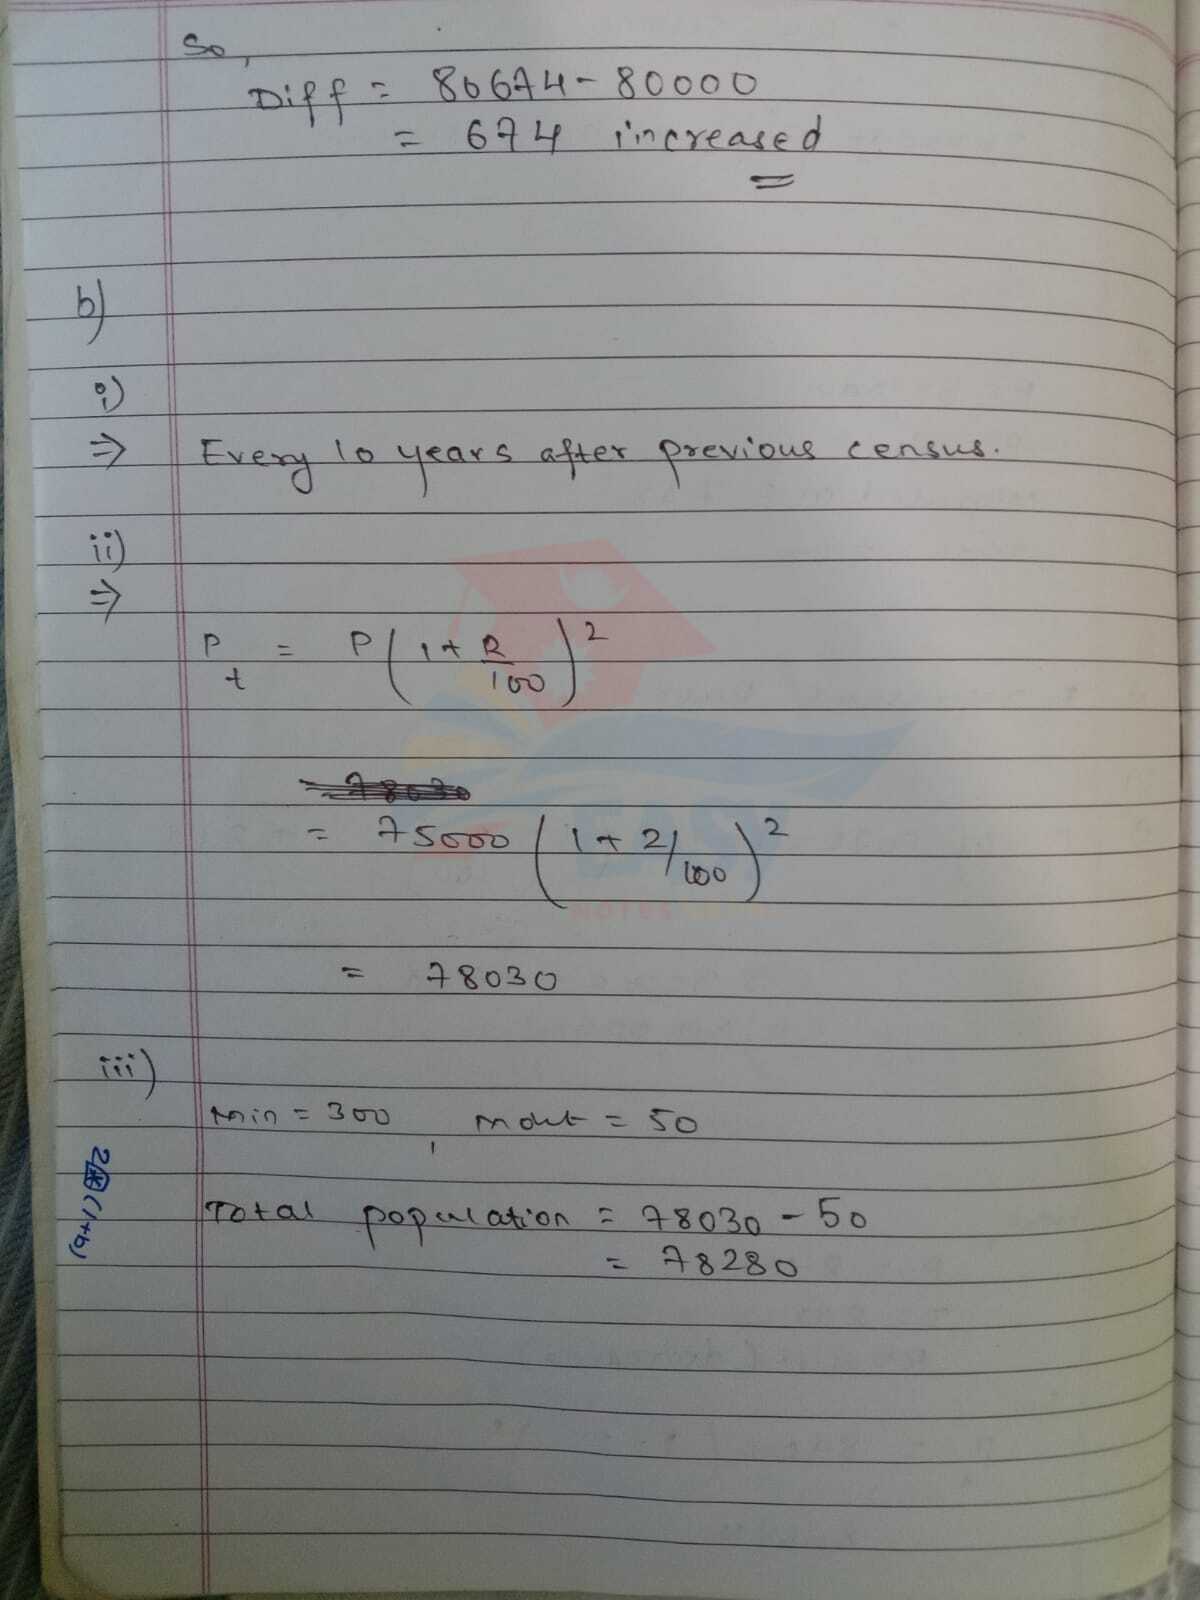 So,
Diff = 80674 - 80000
= 674 increased
b)
i)
⇒ Every 10 years after previous census.
ii)
⇒
P_t = P(1 + R/100)^2
= 78030
= 75000 (1 + 2/100)^2
EASY
NOTES
= 78030
iii)
Min = 300, Mout = 50
Total population = 78030 - 50
= 78280